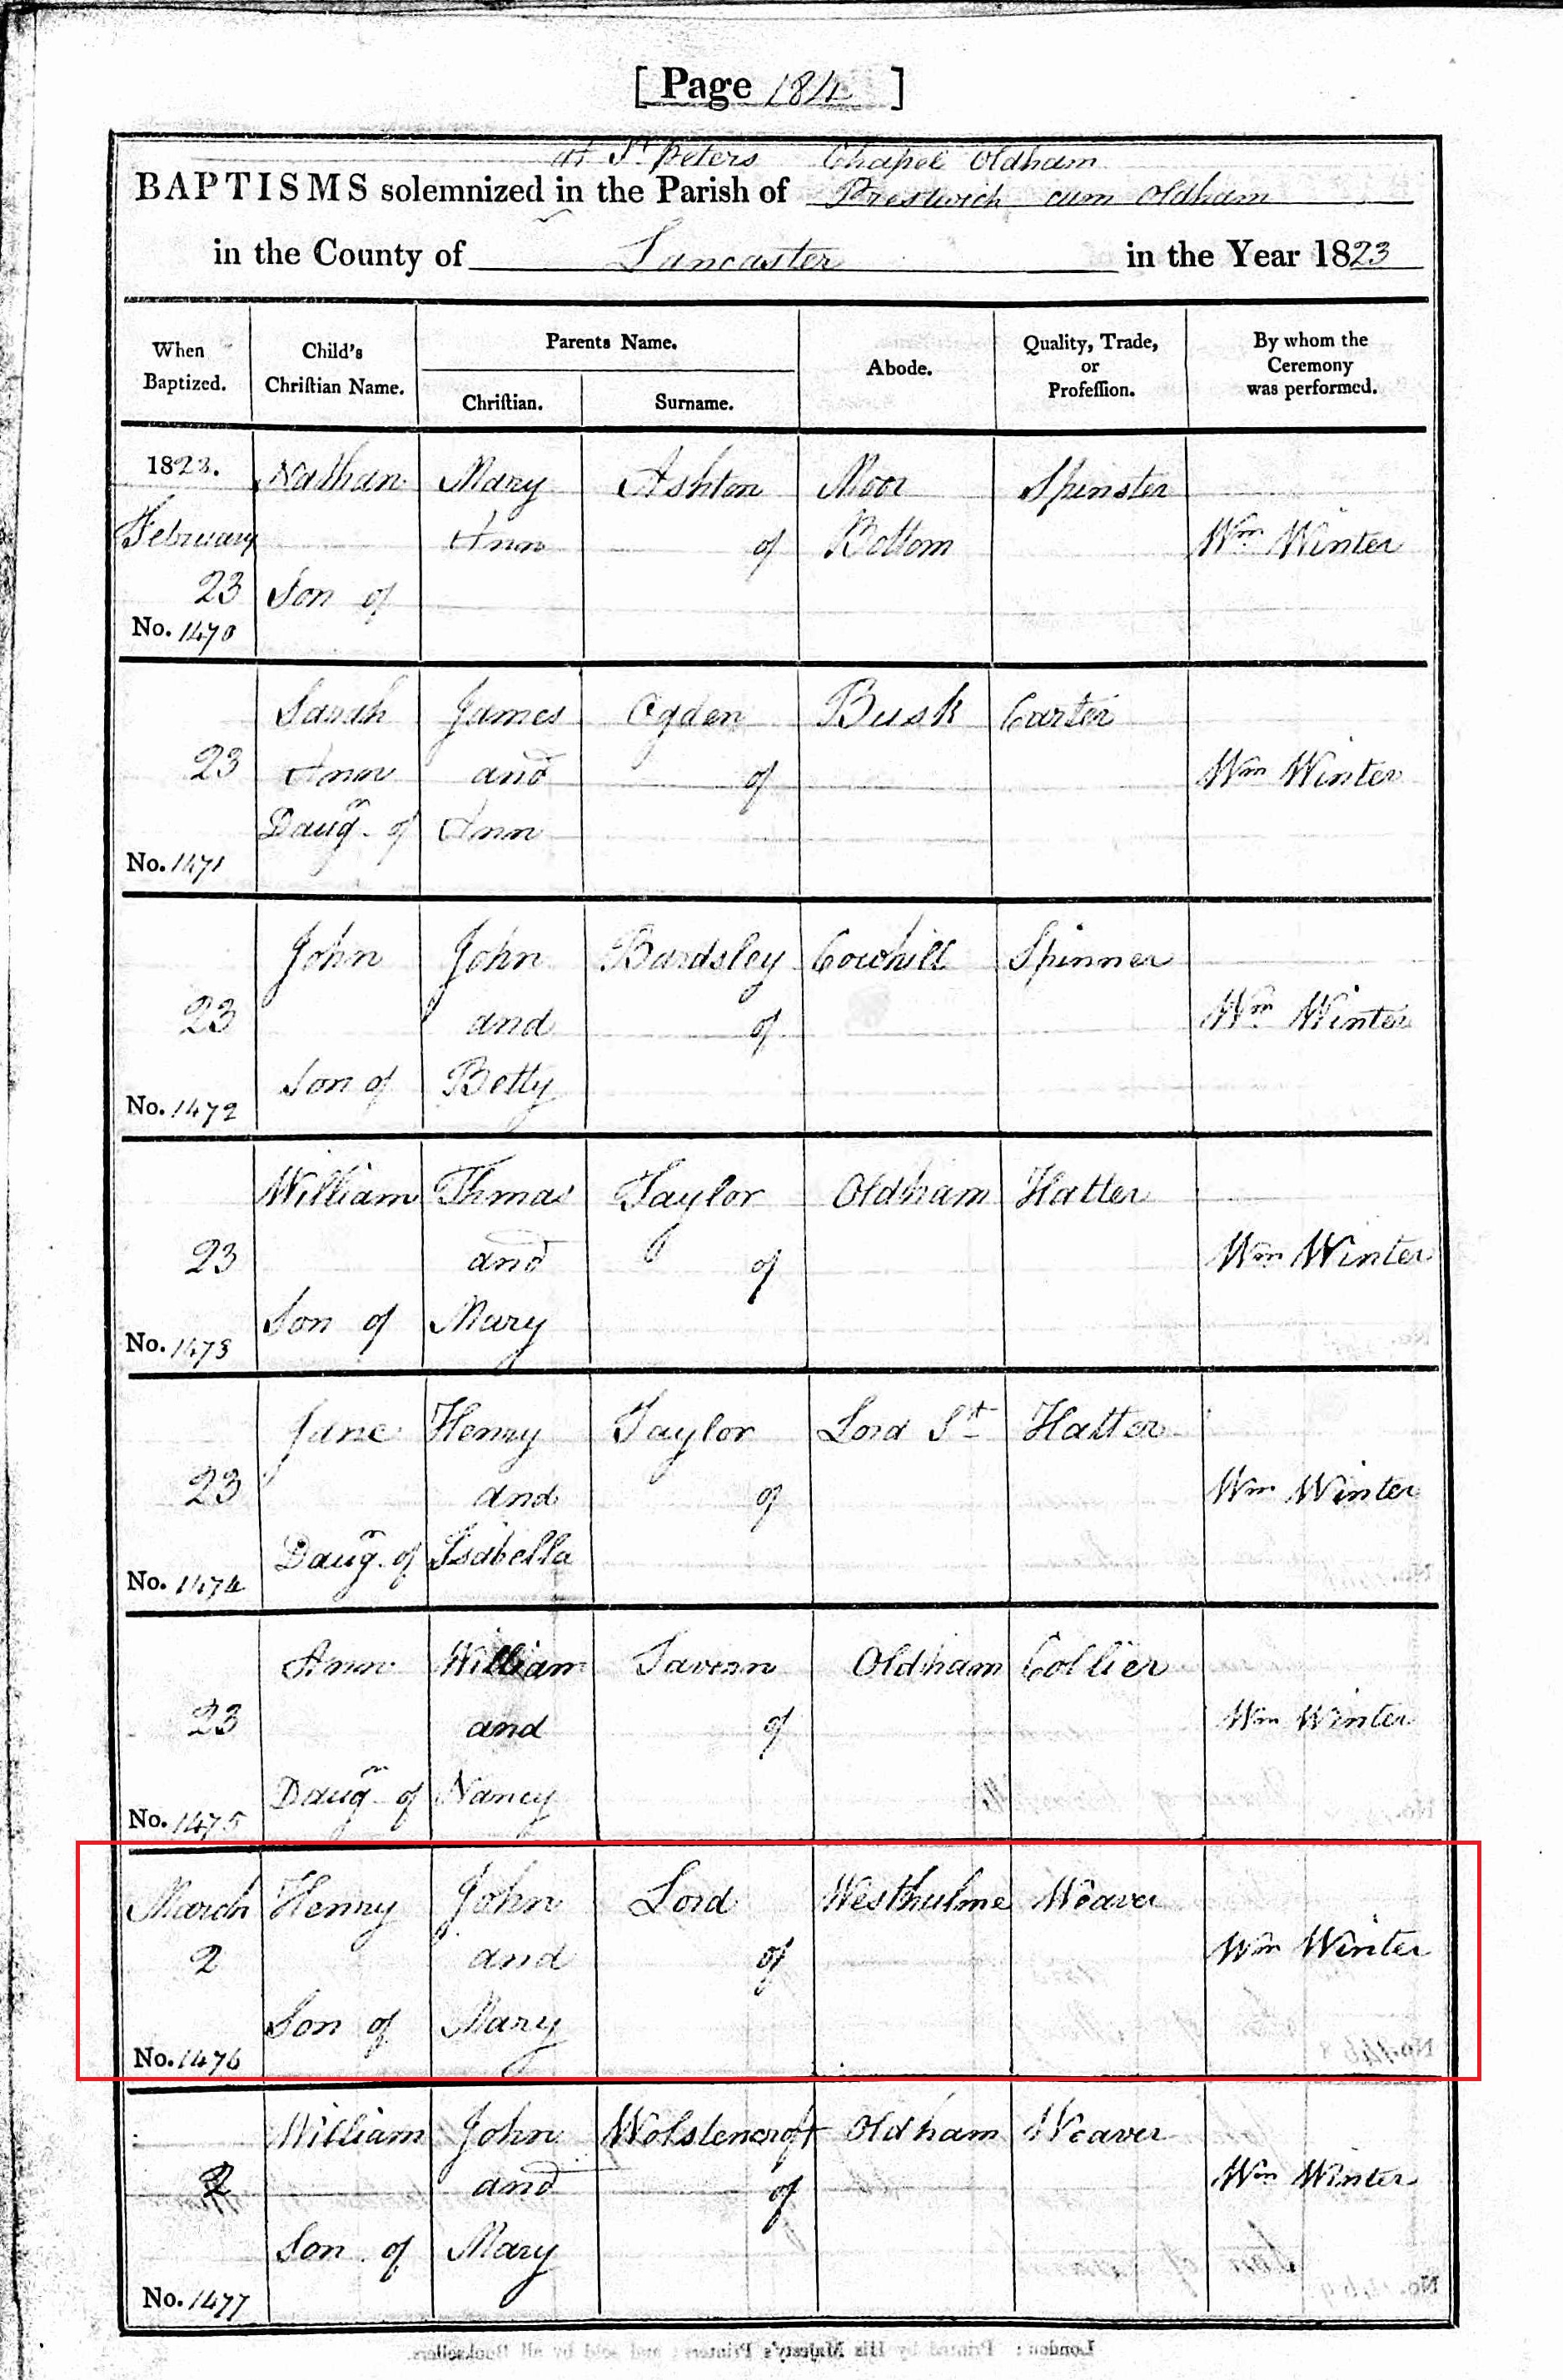 [ Page 184 ]
at St. Peters Chapel Oldham
BAPTISMS solemnized in the Parish of Prestwich cum Oldham
in the County of Lancaster in the Year 1823
When Baptized. Child's Christian Name. Parents Name. Abode. Quality, Trade, or Profession. By whom the Ceremony was performed.
Christian. Surname.
1823. Nathan Mary Ashton Moor Spinster
February Ann of Bottom Wm Winter
23 Son of
No. 1470
Sarah James Ogden Busk Carter
23 Ann and of Wm Winter
Daugr. of Ann
No. 1471
John John Bardsley Cowhill Spinner
23 and of Wm Winter
Son of Betty
No. 1472
William Thmas Taylor Oldham Hatter
23 and of Wm Winter
Son of Mary
No. 1473
Jane Henry Taylor Lord St Hatter
23 and of Wm Winter
Daugr. of Isabella
No. 1474
Ann William Tavern Oldham Collier
23 and of Wm Winter
Daugr of Nancy
No. 1475
March Henry John Lord Westhulme Weaver
2 and of Wm Winter
Son of Mary
No. 1476
William John Wolstencroft Oldham Weaver
2 and of Wm Winter
Son of Mary
No. 1477
London: Printed by His Majesty's Printers; and sold by all Booksellers.